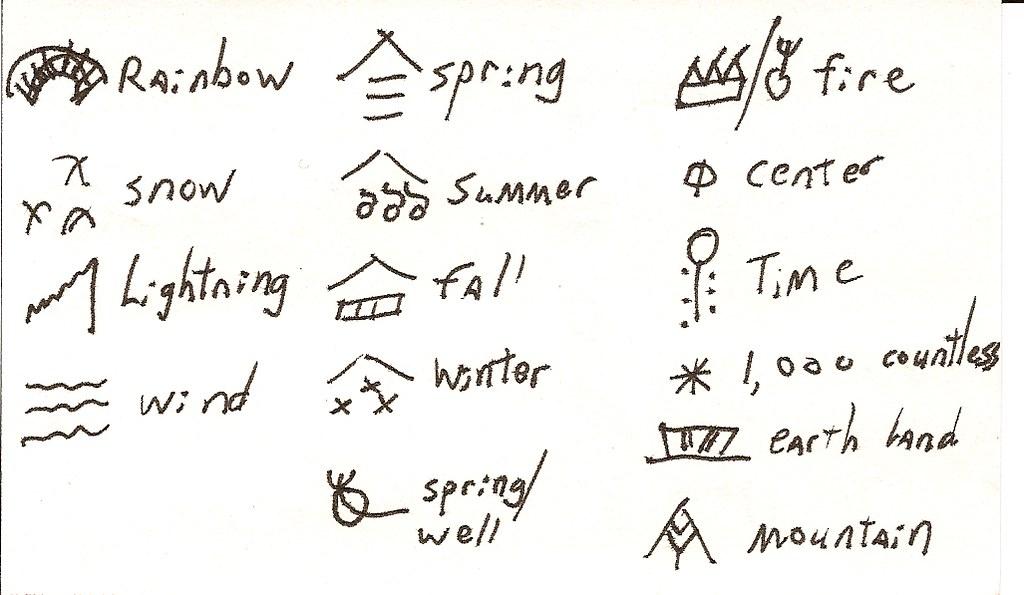 Rainbow
snow
Lightning
wind
spring
summer
fall
winter
spring/
well
fire
center
Time
1,000 countless
earth land
mountain